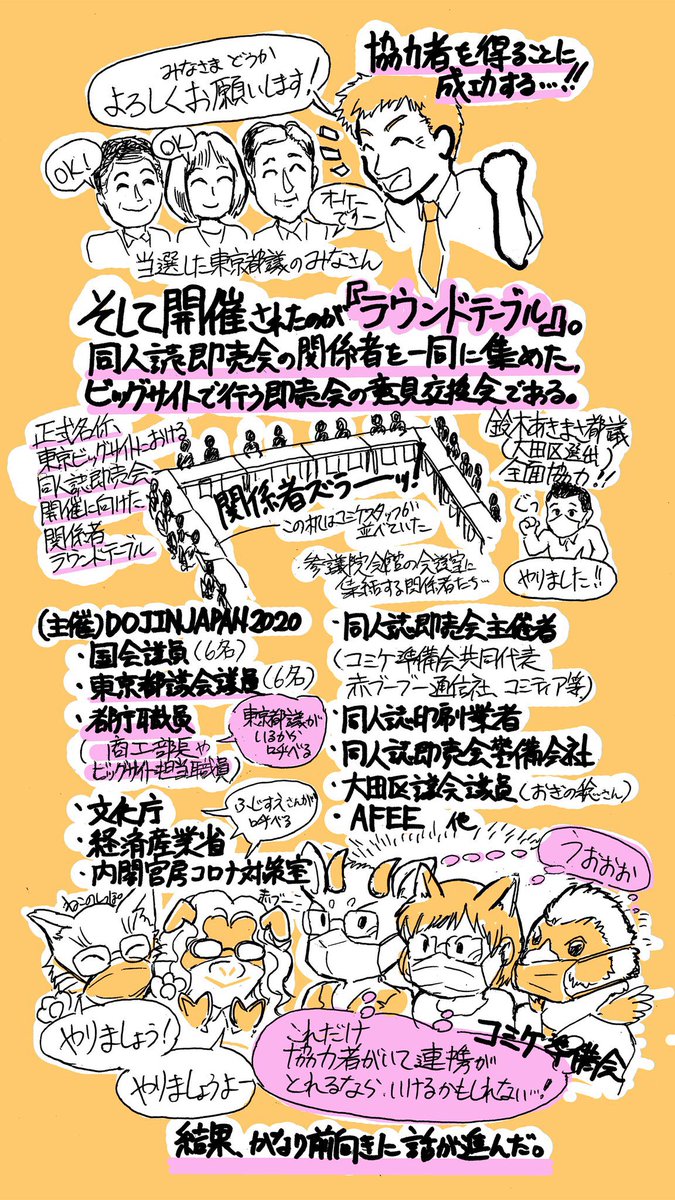 協力者を得ることに
成功する…!!
みなさま どうか
よろしくお願いします!
OK!
OK!
オーケーですー
当選した東京都議のみなさん
そして開催されたのが『ラウンドテーブル』。
同人誌即売会の関係者を一同に集めた、
ビッグサイトで行う即売会の意見交換会である。
正式名称、
東京ビッグサイトにおける
同人誌即売会
開催に向けた
関係者
ラウンドテーブル
関係者ズラーーッ!
この机はコミケスタッフが
並べていた
参議院会館の会議室に
集結する関係者たち…
鈴木あきまさ都議
(大田区選出)
全面協力!!
ぐっ
やりました!!
(主催)DOJINJAPAN2020
・国会議員(6名)
・東京都議会議員(6名)
・都庁職員
(商工部長や
ビッグサイト担当職員)
東京都議が
いるから
口チベる
・文化庁
・経済産業省
・内閣官房コロナ対策室
ふじすえさんが
口チベる
・同人誌即売会主催者
(コミケ準備会共同代表
赤ブーブー通信社、コミティア等)
・同人誌印刷業者
・同人誌即売会警備会社
・大田区議会議員(おぎの稔さん)
・AFEE 他
うおおお
ねこのしっぽ
赤ブー
やりましょう!
やりましょうよー
これだけ
協力者がいて連携が
とれるなら、いけるかもしれない…!
コミケ準備会
結果、かなり前向きに話が進んだ。